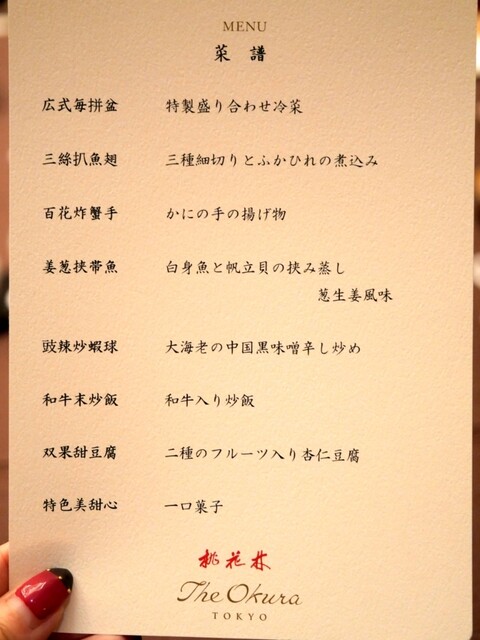 MENU
菜譜
広式毎拼盆 特製盛り合わせ冷菜
三絲扒魚翅 三種細切りとふかひれの煮込み
百花炸蟹手 かにの手の揚げ物
姜葱挟帯魚 白身魚と帆立貝の挟み蒸し
葱生姜風味
豉辣炒蝦球 大海老の中国黒味噌辛し炒め
和牛末炒飯 和牛入り炒飯
双果甜豆腐 二種のフルーツ入り杏仁豆腐
特色美甜心 一口菓子
桃花林
The Okura
TOKYO